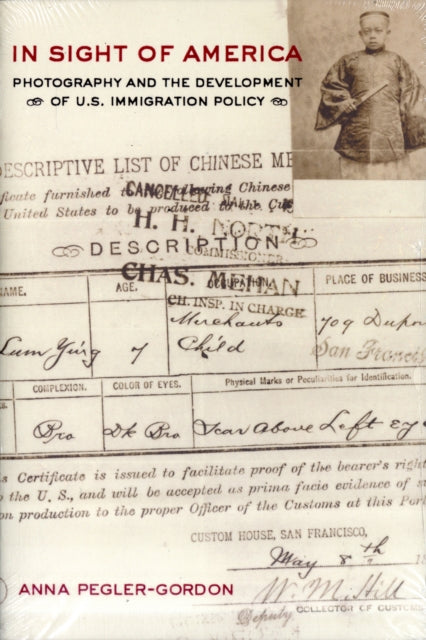 IN SIGHT OF AMERICA
PHOTOGRAPHY AND THE DEVELOPMENT
OF U.S. IMMIGRATION POLICY
DESCRIPTIVE LIST OF CHINESE ME
ficate furnished to the following Chinese
United States to be produced to the
CANCELLED
H. H. NORTH
COMMISSIONER
DESCRIPTION
CHAS. MEHAN
CH. INSP. IN CHARGE
NAME. AGE. OCCUPATION. PLACE OF BUSINESS
Lum Ying 7 Merchants Child 709 Dupon
San Francis
COMPLEXION. COLOR OF EYES. Physical Marks or Peculiarities for Identification.
Bro Dk Bro Scar Above Left Ey
s Certificate is issued to facilitate proof of the bearer's righ
o the U. S., and will be accepted as prima facie evidence of
on production to the proper Officer of the Customs at this Por
CUSTOM HOUSE, SAN FRANCISCO,
May 8th
W. M. Hill
Deputy COLLECTOR OF CUSTOMS
ANNA PEGLER-GORDON